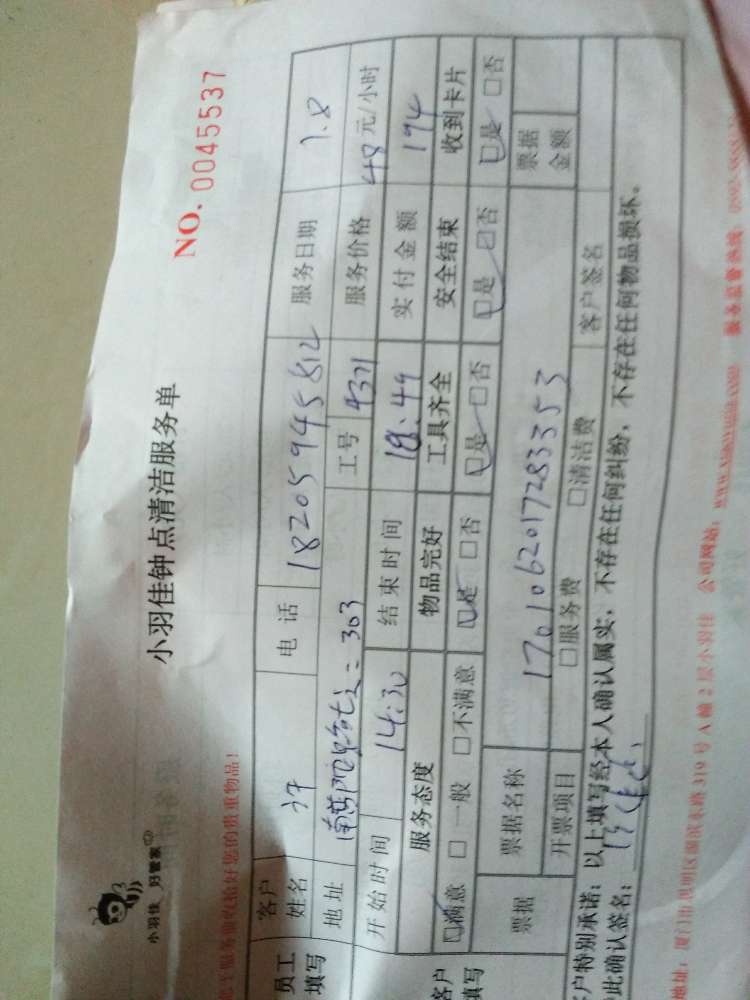 小羽佳 好管家
小羽佳钟点清洁服务单
NO. 0045537
服务前收拾好您的贵重物品!
员工填写
客户姓名 许 电话 18205945812 服务日期 7.8
地址 =303 工号 9371 服务价格 48元/小时
开始时间 14:30 结束时间 18:49 实付金额 194
客户填写
服务态度 物品完好 工具齐全 安全结束 收到卡片
☑满意 □一般 □不满意 ☑是 □否 ☑是 □否 ☑是 □否 ☑是 □否
票据 票据名称 1701062017283353 票据金额
开票项目 □服务费 □清洁费 客户签名
客户特别承诺:以上填写经本人确认属实,不存在任何纠纷,不存在任何物品损坏。
此确认签名:
地址:厦门市思明区湖滨东路319号A幢2层小羽佳 公司网站: 服务监督热线: